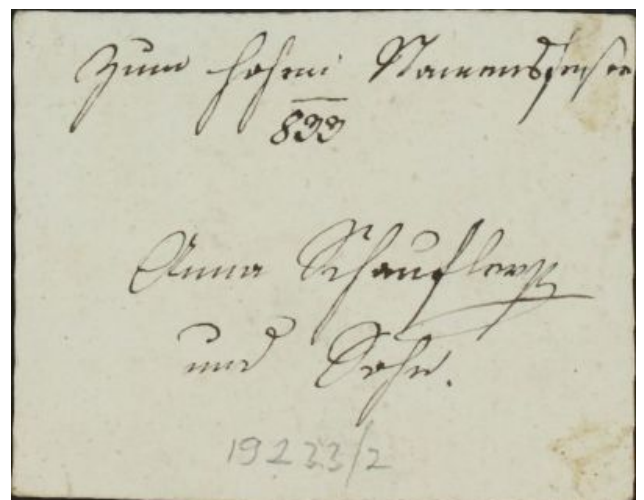 Zum hohen Namensfeste
833
Anna Schaufler
und Sohn.
19233/2